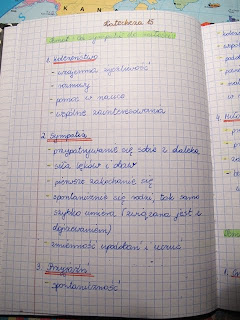 Katecheza 15
Temat: Od sympatii do miłości
1. Koleżeństwo
- wzajemna życzliwość
- rozmowy
- pomoc w nauce
- wspólne zainteresowania
2. Sympatia
- przypatrywanie się sobie z daleka
- siła lęków i obaw
- pierwsze zakochanie się
- spontanicznie się rodzi, tak samo
szybko umiera (związana jest z
dojrzewaniem)
- zmienność upodobań i uczuć
3. Przyjaźń
- spontaniczność
4. Miło